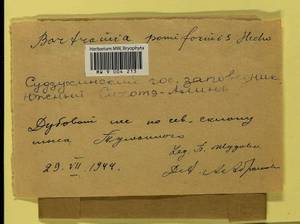 Bartramia pomiformis Hedw
Herbarium MW, Bryophyta
MW 9 004 213
Судзухинский гос. заповедник
Южный Сихотэ-Алинь
Дубовый лес по сев. склону
Туманного
29. VII. 1944.
Det.